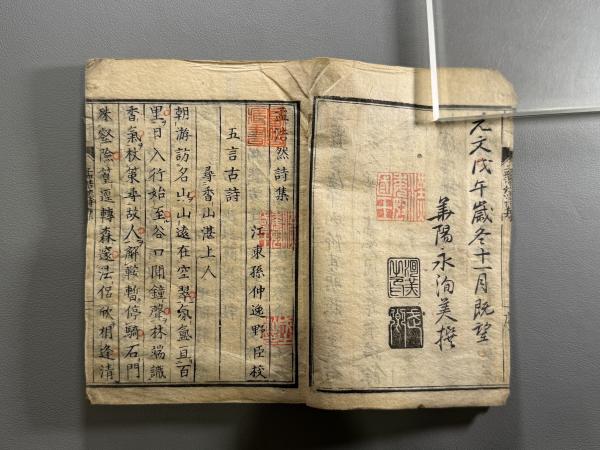 元文戊午歲冬十一月既望
華陽永洵美撰
孟浩然詩集
江東孫仲逸野臣校
五言古詩
尋香山湛上人
朝游訪名山山遠在空翠氛氳亘百
里日入行始至谷口聞鐘聲林端識
香氣杖策尋故人解鞍暫停騎石門
殊壑險篁逕轉森邃法侶欣相逢清